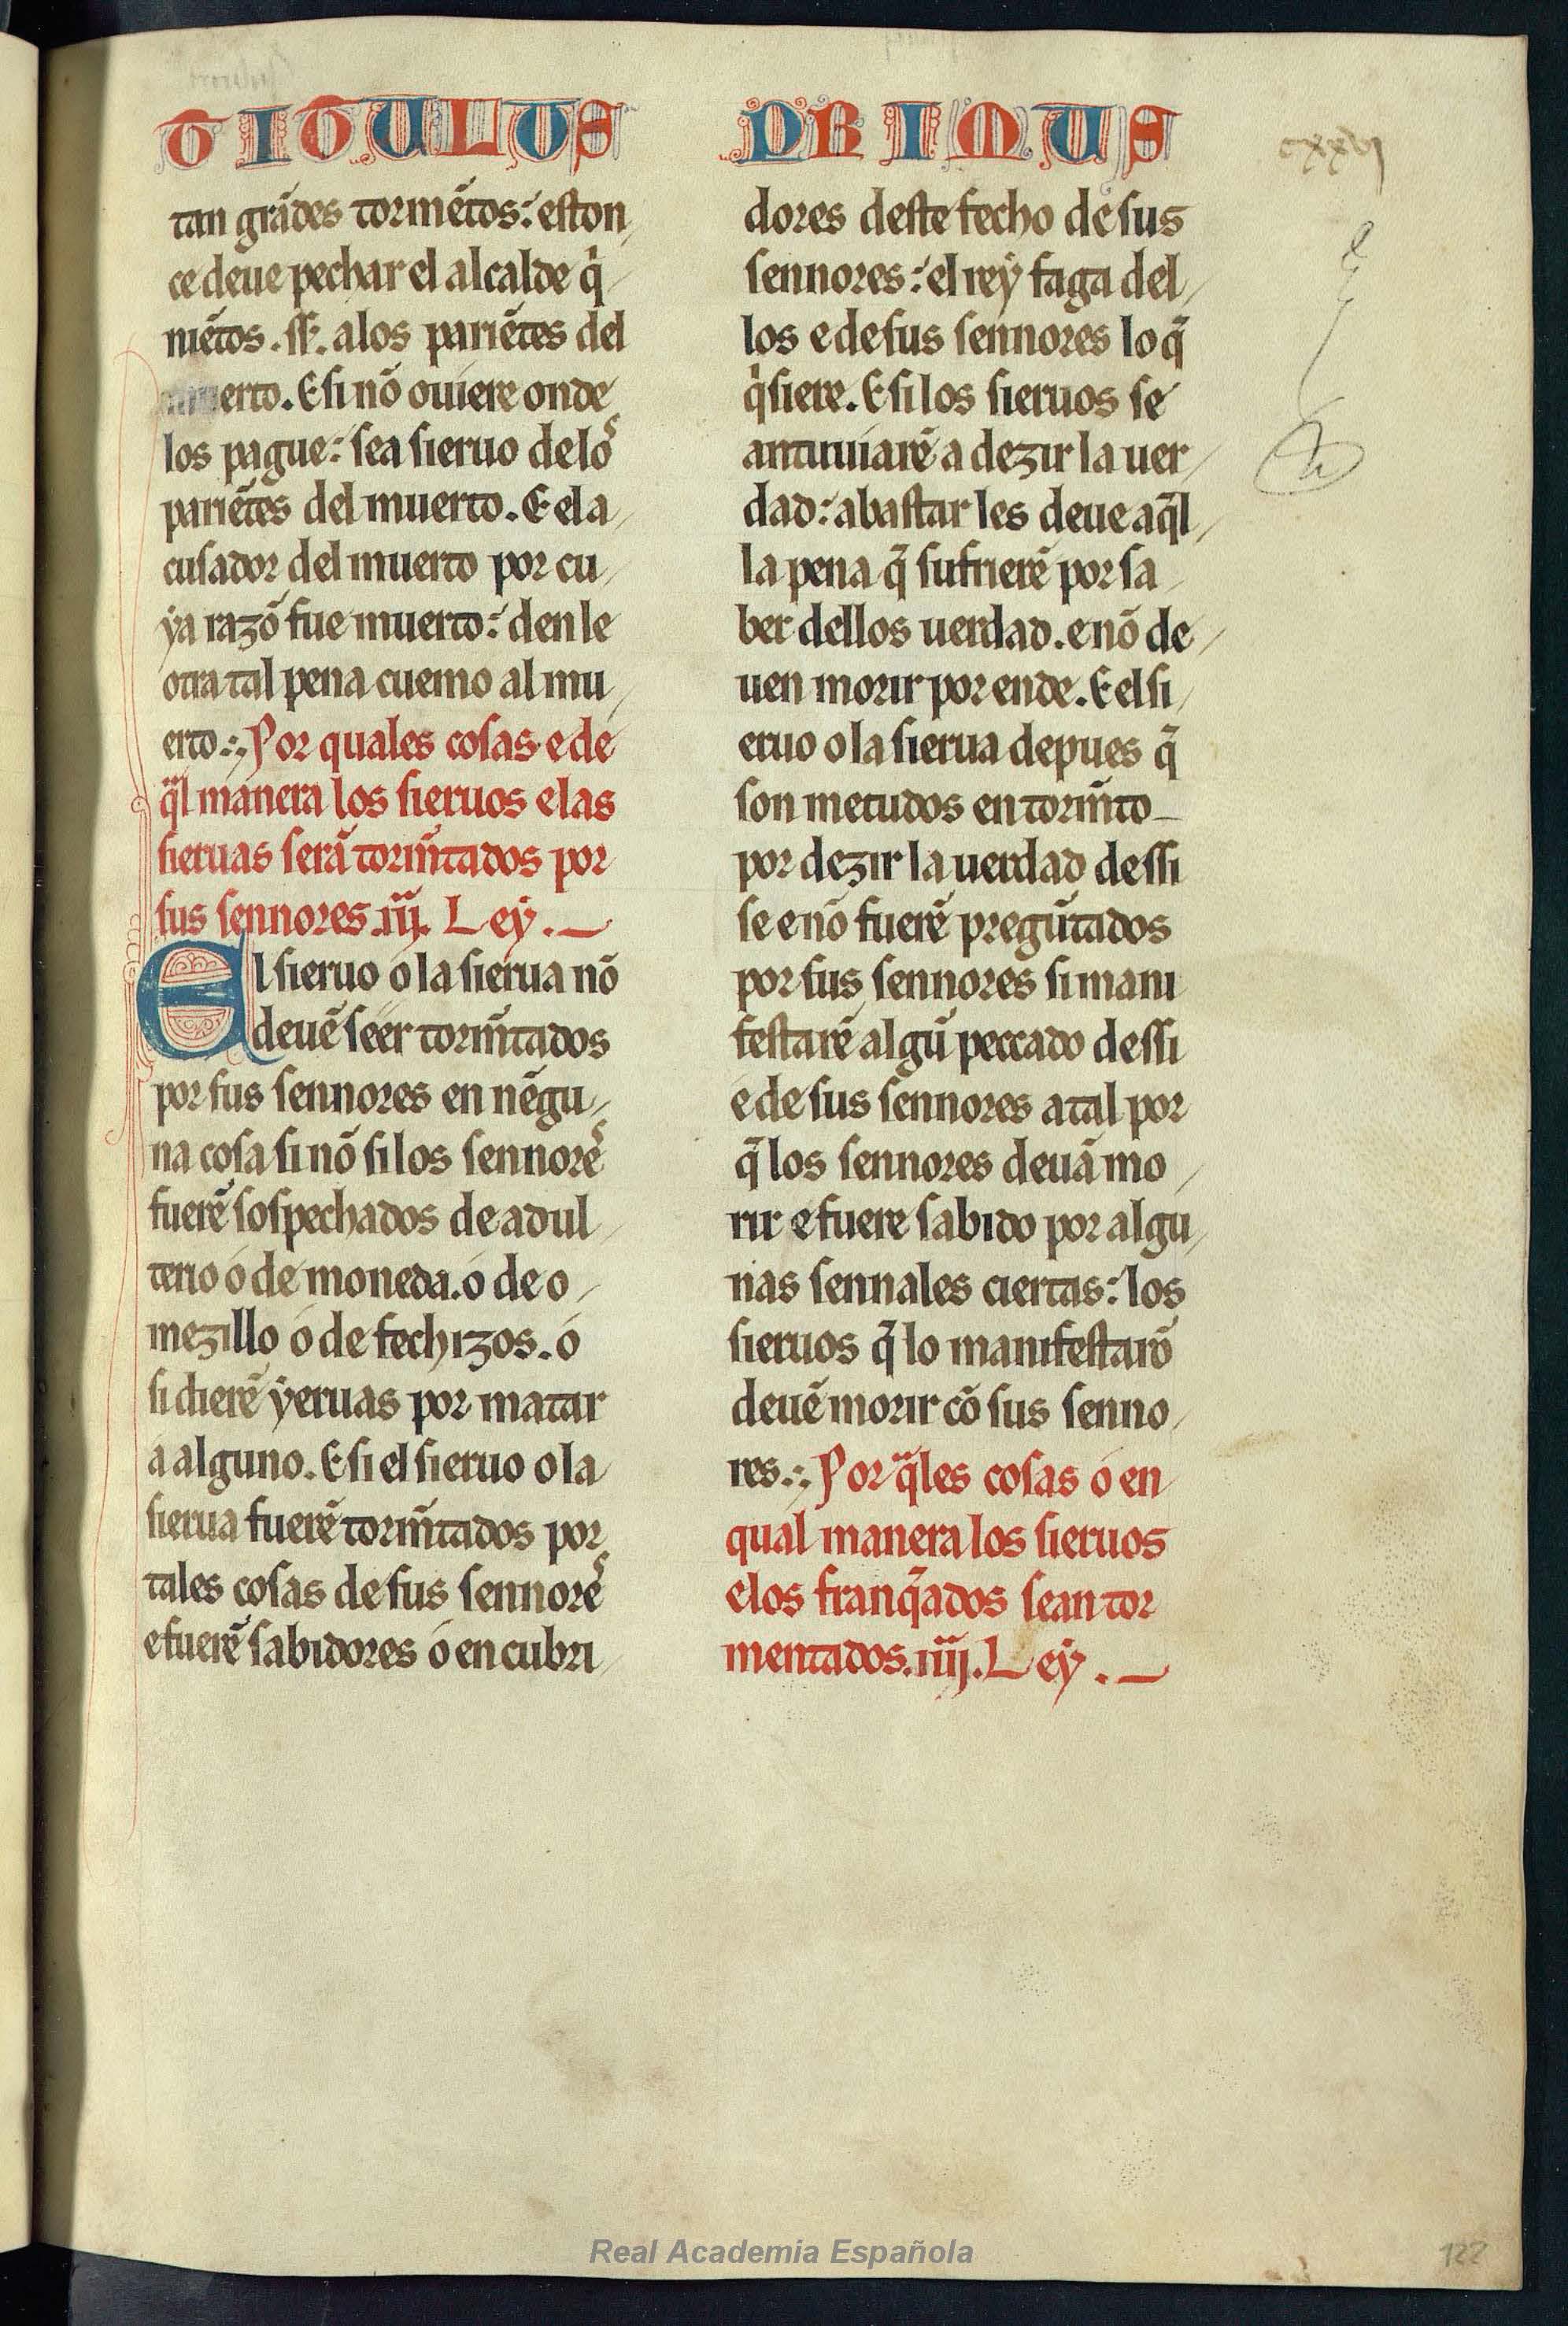 TITULUS PRIMUS
cxxvj
tan grãdes tormẽtos: eſton
ce deue pechar el alcalde q̇
niẽtos .ſſ. a los pariẽtes del
muerto. E ſi nõ ouiere onde
los pague: ſea ſieruo de loˢ
pariẽtes del muerto. E el a
cuſador del muerto por cu
ẏa razõ fue muerto: den le
otra tal pena cuemo al mu
erto. Por quales coſas e de
q̃l manera los ſieruos e las
ſieruas ſerã tormẽtados por
ſus ſennores .iij. Leẏ.
El ſieruo o la ſierua nõ
deuẽ ſeer torm̃tados
por ſus ſennores en nẽgu
na coſa ſi nõ ſi los ſennoreˢ
fuerẽ ſoſpechados de adul
terio o de moneda. o de o
mezillo o de fechizos. o
ſi dierẽ ẏeruas por matar
a alguno. E ſi el ſieruo o la
ſierua fuerẽ torm̃tados por
tales coſas de ſus ſennoreˢ
e fuerẽ ſabidores o encubri
dores deſte fecho de ſus
ſennores: el reẏ faga del
los e de ſus ſennores lo q̃
q̇ſiere. E ſi los ſieruos ſe
antuuiarẽ a dezir la uer
dad: abaſtar les deue aq̃l
la pena q̃ ſufrierẽ por ſa
ber dellos uerdad. e nõ de
uen morir por ende. E el ſi
eruo o la ſierua depues q̃
ſon metudos en torm̃to
por dezir la uerdad deſſi
ſe e nõ fuerẽ pregũtados
por ſus ſennores ſi mani
feſtarẽ algũ peccado deſſi
e de ſus ſennores atal por
q̃ los ſennores deuã mo
rir e fuere ſabido por algu
nas ſennales ciertas: los
ſieruos q̃ lo manifeſtarõ
deuẽ morir cõ ſus ſenno
res. Por q̃les coſas o en
qual manera los ſieruos
e los franq̃ados ſean tor
mentados .iiij. Leẏ.
Real Academia Española
122